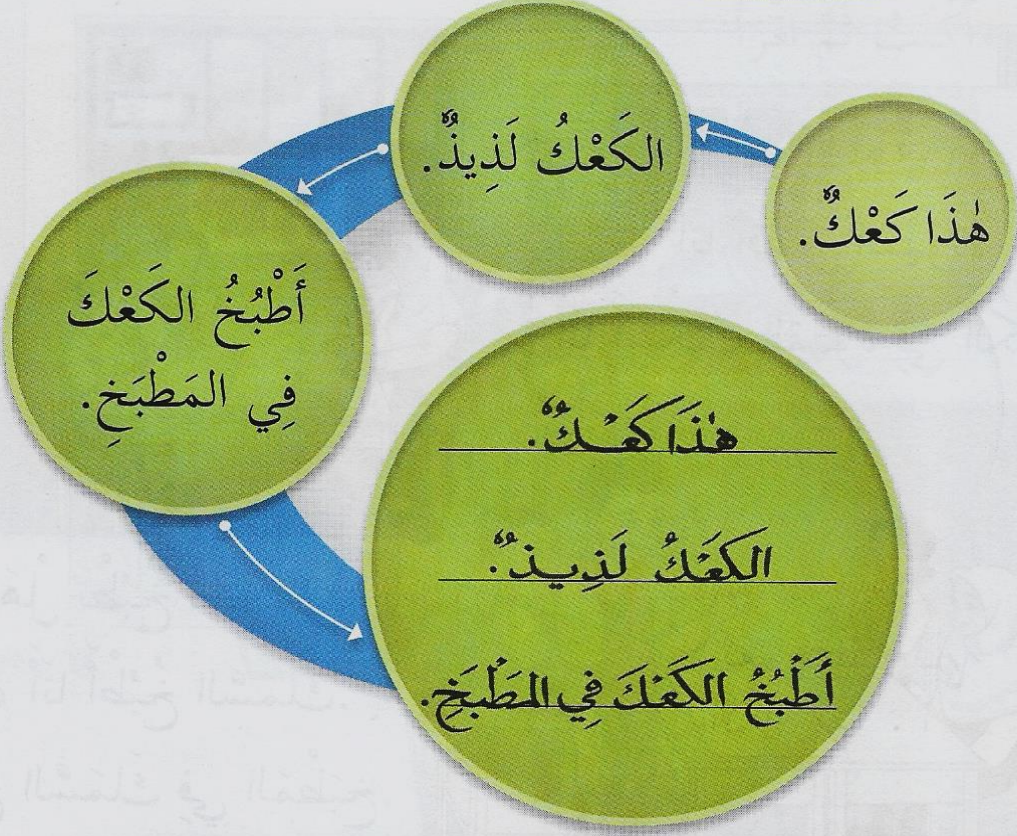 هٰذَا كَعْكٌ.
الكَعْكُ لَذِيذٌ.
أَطْبُخُ الكَعْكَ
فِي المَطْبَخِ.
هٰذَا كَعْكٌ.
الكَعْكُ لَذِيذٌ.
أَطْبُخُ الكَعْكَ فِي المَطْبَخِ.